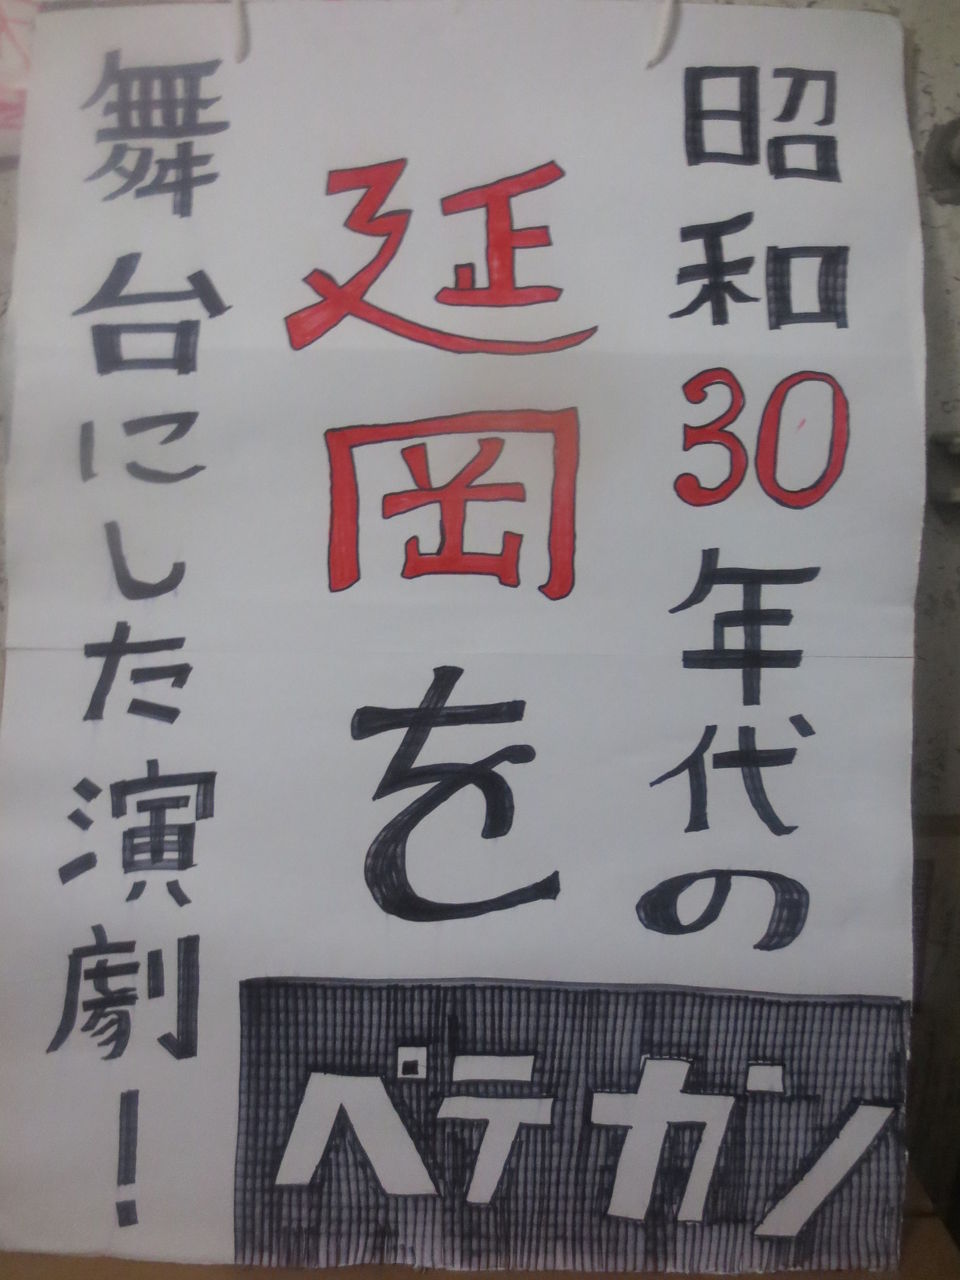 昭和30年代の
延岡を
舞台にした演劇！
ペテガン